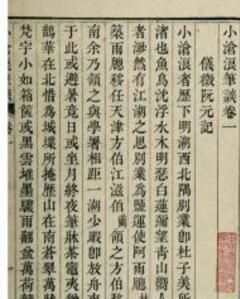 小滄浪筆談卷一
儀徵阮元記
小滄浪者歷下明湖西北隅別業卽杜子美所
渚也魚鳥沈浮水木明瑟白蓮彌望青山嚮人
者渺然有江湖之思別業為鹽運使阿雨牕
築雨牕移任天津方伯江滋伯蘭領之方伯移
南余乃領之與學署相距一湖少暇卽放舟
于此或避暑竟日或坐月終夜筆牀茶竈夷猶
鵲華在北惜為城堞所掩歷山在南蒼翠萬
梵宇小如箱篋或黑雲堆墨驟雨翻盆萬荷